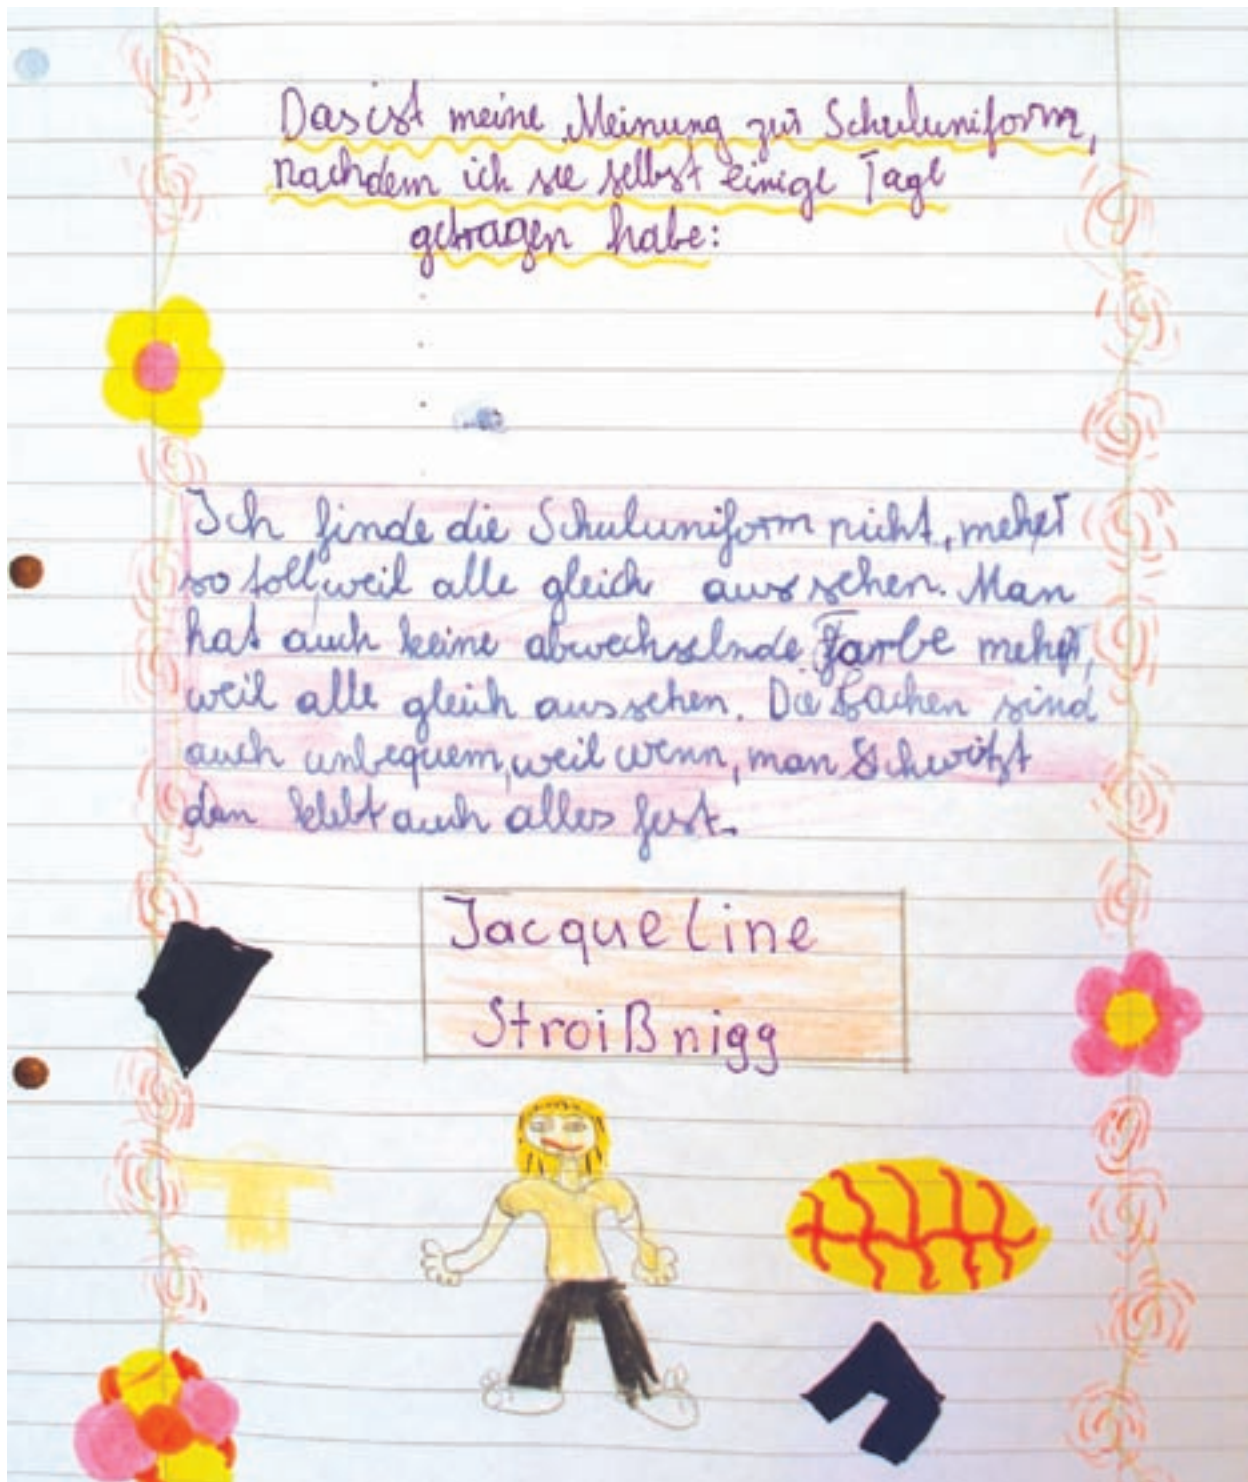 Das ist meine Meinung zur Schuluniform,
nachdem ich sie selbst einige Tage
getragen habe:
Ich finde die Schuluniform nicht, mehr
so toll, weil alle gleich aussehen. Man
hat auch keine abwechselnde Farbe mehr,
weil alle gleich aussehen. Die Sachen sind
auch unbequem, weil wenn, man schwitzt
dan klebt auch alles fest.
Jacqueline
Stroißnigg